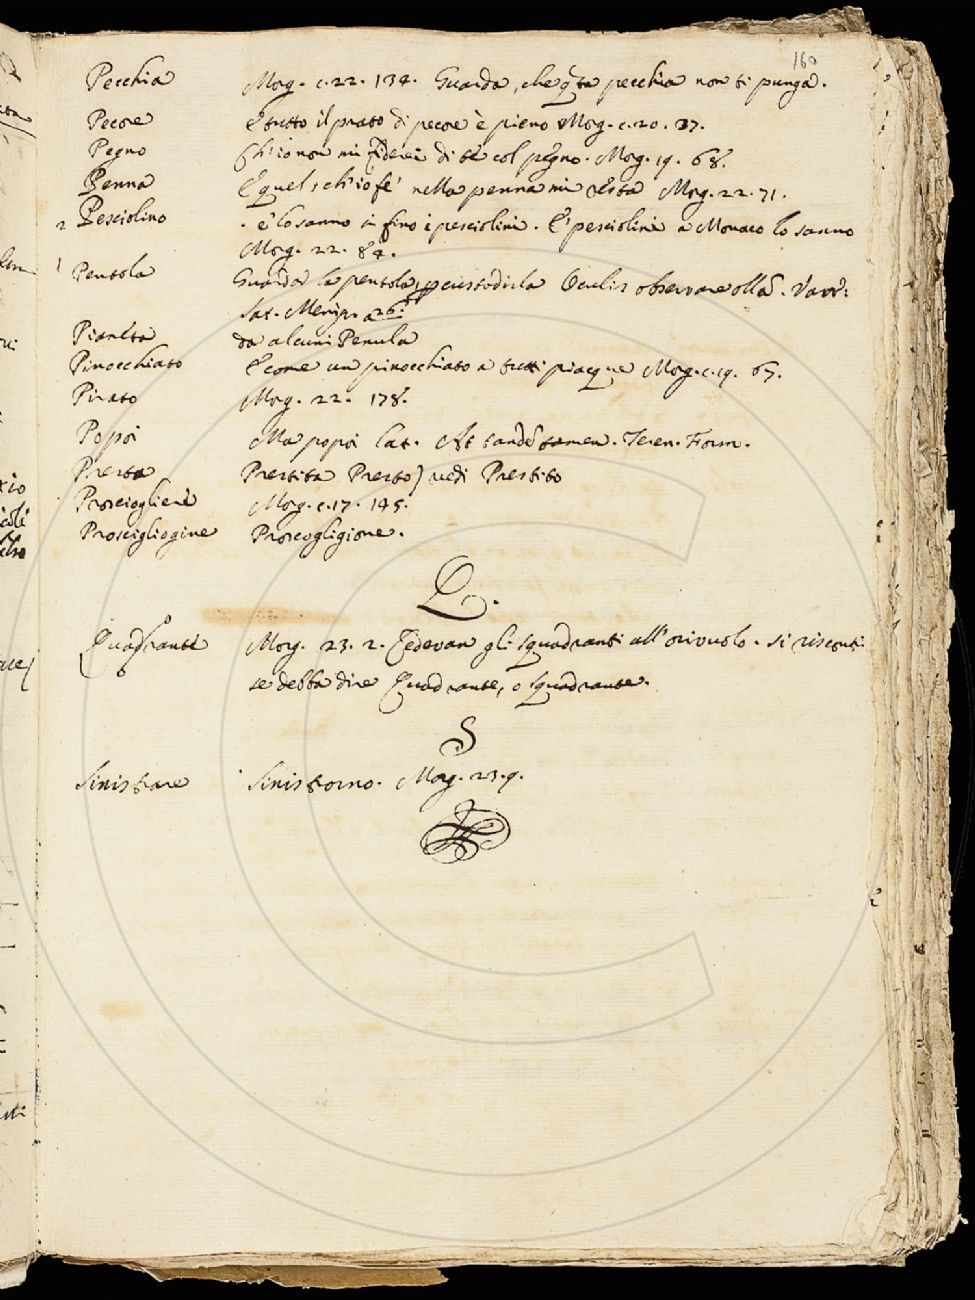 160
Pecchia Morg. c. 22. 134. Guarda, che q̃ta pecchia non ti punga.
Pecore E tutto il prato di pecore è pieno Morg. c. 20. 37.
Pegno Ch'io non mi fiderei di te col pegno. Morg. 19. 68.
Penna E quel, ch'io fe' nella penna mi resta Morg. 22. 71.
2 Pesciolino e lo sanno in fino i pesciolini. E i pesciolini a Monaco lo sanno
Morg. 22. 84.
1 Pentola Guarda la pentola, custodirla Oculis observare ollã. Varr:
Sat. Menip. a 26.
Pianeta da alcuni Penula
Pinocchiato E come un pinocchiato a tutti piacque Morg. c. 19. 67.
Pirato Morg. 22. 178.
Popoi Ma popoi Lat. At tandẽ tamen. Teren. Form.
Presta Prestita Presto) vedi Prestito
Prosciogliere Morg. c. 17. 145.
Proscigliogine Proscogligione.
Q.
Quadrante Morg. 23. 2. Vedevan gli squadranti all'orivuolo. si risconti
se debba dire Quadrante, o squadrante.
S
Sinistrare Sinistrorno. Morg. 23. 9.